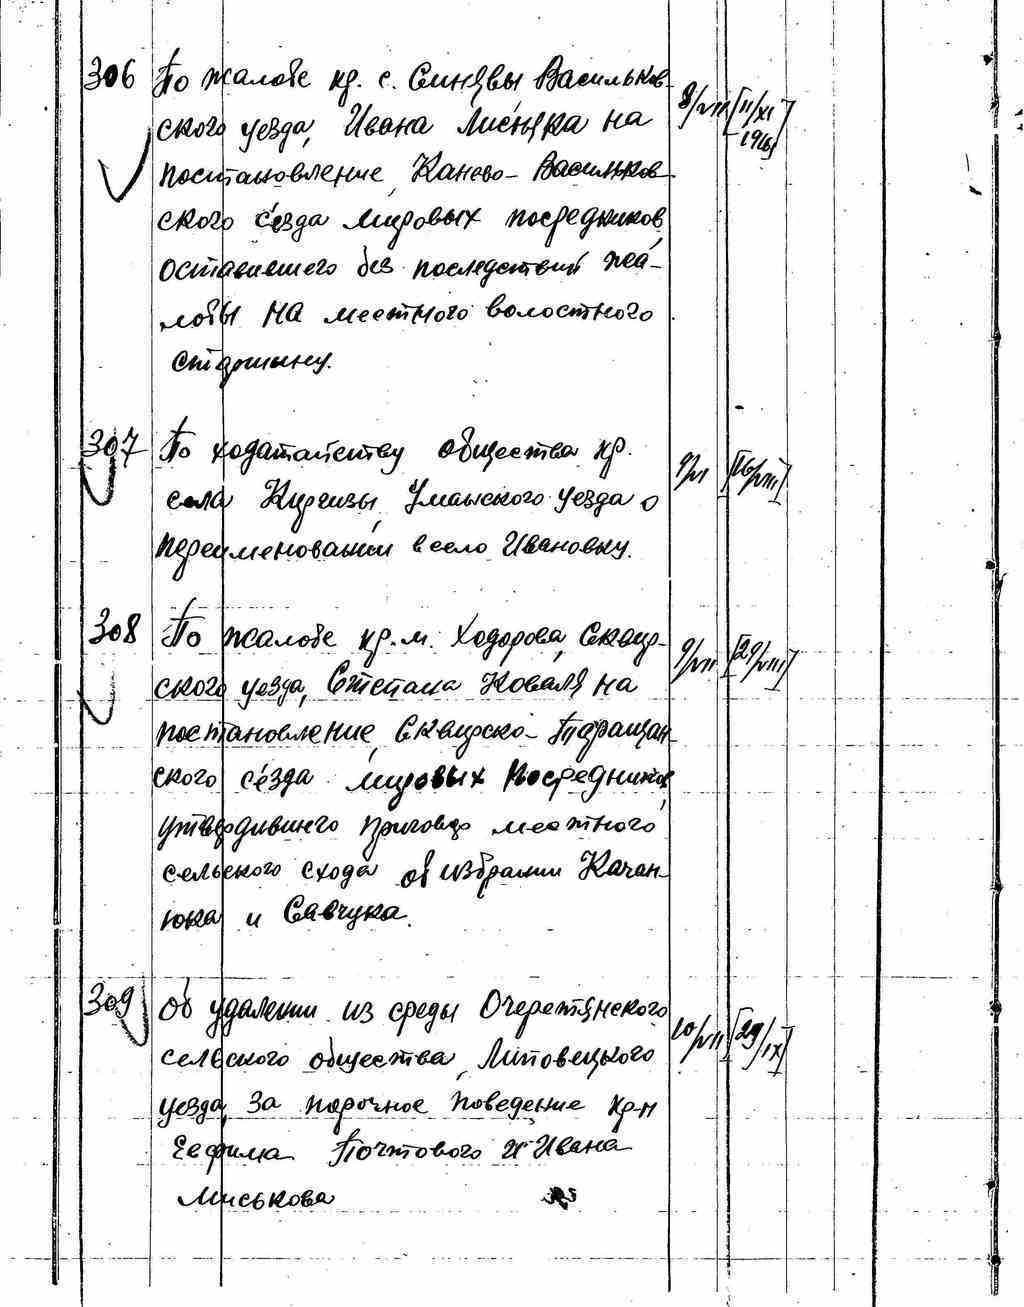 306 По жалобе кр. с. Синявы Васильков-
ского уезда, Ивана Лисняка на 8/VII [11/XI
1916]
постановление Канево-Васильков-
ского с'езда мировых посредников,
оставившего без последствий жа-
лобы на местного волостного
старшину.
307 По ходатайству общества кр. 9/VI [16/VIII]
села Киргизы, Уманского уезда о
переименовании в село Ивановку.
308 По жалобе кр. м. Ходорова, Сквир- 9/VII [29/VIII]
ского уезда, Степана Коваля на
постановление Сквирско-Таращан-
ского с'езда мировых посредников,
утвердившего приговор местного
сельского схода об избрании Качан-
юка и Савчука.
309 Об удалении из среды Очеретянского 10/VII [29/IX]
сельского общества, Липовецкого
уезда, за порочное поведение кр-н
Евфима Почтового и Ивана
Миськова